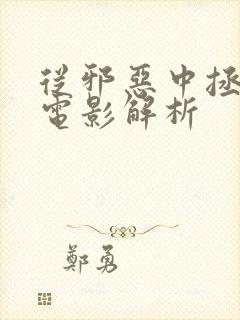 從邪惡中拯
電影解析
鄭勇